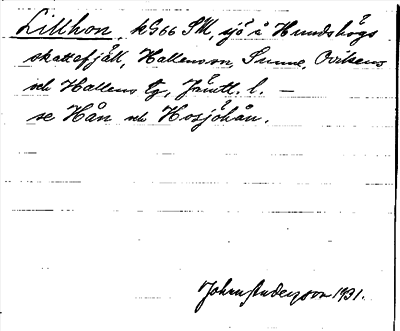 Lillhon, kG66 SM, sjö i Hundshögs
skattefjäll, Hallens sn, Sunne, Ovikens
och Hallens tg, Jämtl. l. —
se Hån och Hosjöhån.
John Anderzon 1931.